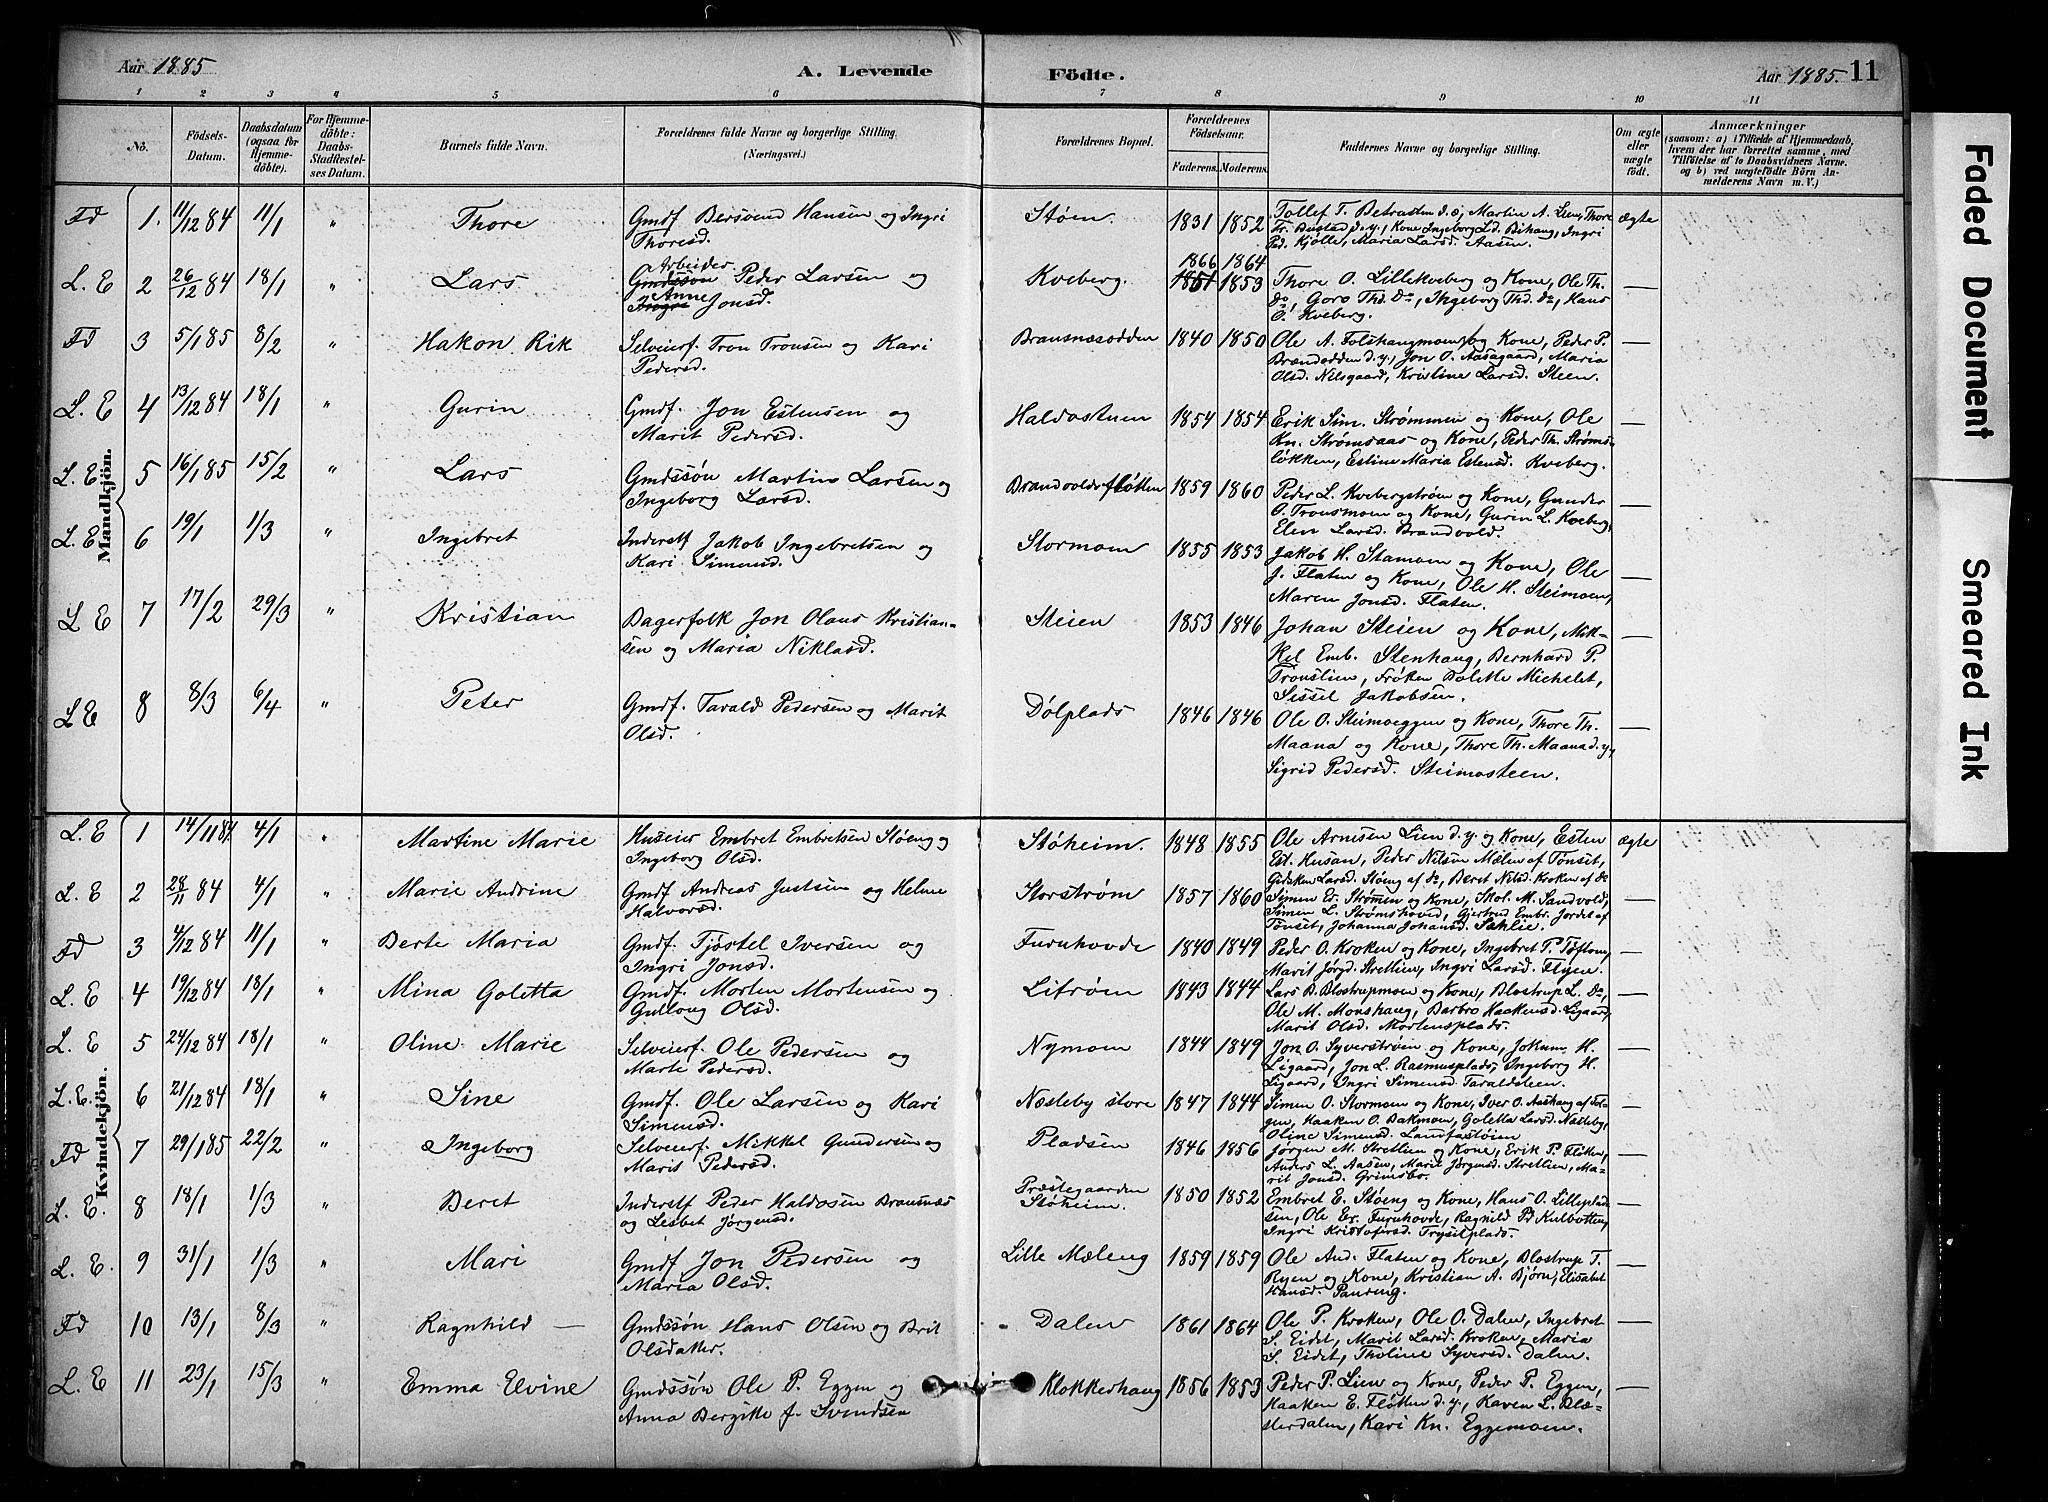 Aar 1885
A. Levende
Födte.
Aar 1885. 11
1 2 3 4 5 6 7 8 9 10 11
No.
Födsels-
Datum.
Daabsdatum
(ogsaa for
Hjemme-
döbte).
For Hjemme-
döbte:
Daabs-
Stadfæstel-
ses Datum.
Barnets fulde Navn.
Forældrenes fulde Navne og borgerlige Stilling.
(Næringsvei.)
Forældrenes Bopæl.
Forældrenes
Födselsaar.
Faderens. Moderens.
Faddernes Navne og borgerlige Stilling.
Om ægte
eller
uægte
födt.
Anmærkninger
(saasom: a) i Tilfælde af Hjemmedaab,
hvem der har forrettet samme, med
Tilföielse af to Daabsvidners Navne.
og b) ved uægtefödte Börn An-
melderens Navn m. V.)
Mandkjön.
Fd 1. 11/12 84 11/1 " Thore
Gmdf. Bersvend Hansen og Ingri
Thoresd.
Støen. 1831 1852
Tollef T. Betrasten d. e., Martin A. Lien, Thore
Tr. Bustad d. y., Kone Ingeborg Ld. Bihaug, Ingri
Ped. Kjølle, Maria Larsd. Aasen.
ægte
L. E 2 26/12 84 18/1 " Lars
Arbeider
Gmdssøn Peder Larsen og
Anne
Ingri Jonsd.
Kveberg.
1866 1864
1851 1853
Thore O. Lillekveberg og Kone, Ole Th.
do, Goro Thd. Do, Ingeborg Thd. Do, Hans
O. Kveberg.
—
Fd 3 5/1 85 8/2 " Hakon Rik
Selveierf. Tron Tronsen og Kari
Pedersd.
Bransnesodden 1840 1850
Ole A. Folshaugmoen og Kone, Peder P.
Brændodden d. y., Jon O. Aasagaard, Maria
Olsd. Nilsgaard, Kristine Larsd. Steen.
—
L. E 4 13/12 84 18/1 " Gurin
Gmdf. Jon Estensen og
Marit Pedersd.
Haldostuen 1854 1854
Erik Sim. Strømmen og Kone, Ole
Kn. Strømsaas og Kone, Peder Th. Strøms-
løkken, Estine Maria Estensd. Kveberg.
—
L. E 5 16/1 85 15/2 " Lars
Gmdssøn Martin Larsen og
Ingeborg Larsd.
Brandvoldsfløtten 1859 1860
Peder L. Kvebergstrøen og Kone, Gunder
O. Tronsmoen og Kone, Gurin L. Kveberg,
Elen Larsd. Brandvold.
—
L. E 6 19/1 1/3 " Ingebret
Inderstf Jakob Ingebretsen og
Kari Simensd.
Stormoen 1855 1853
Jakob H. Stamoen og Kone, Ole
J. Flaten og Kone, Ole H. Steimoen,
Maren Jonsd. Flaten.
—
L E 7 17/2 29/3 " Kristian
Bagerfolk Jon Olaus Kristian-
sen og Maria Niklasd.
Steien 1853 1846
Johan Steien og Kone, Mik-
kel Emb. Stenhaug, Bernhard P.
Tronslien, Frøken Bolette Michelet,
Sissel Jakobsen.
—
L E 8 8/3 6/4 " Peter
Gmdf. Tarald Pedersen og Marit
Olsd.
Dølplads 1846 1846
Ole O. Steimoeggen og Kone, Thore Th.
Maana og Kone, Thore Th. Maana d. y,
Sigrid Pedersd. Steimosteen.
—
Kvindekjön.
L. E 1 14/11 84 4/1 " Martine Marie
Huseier Embret Embretsen Støeng og
Ingeborg Olsd.
Støheim. 1848 1855
Ole Arnesen Lien d. y. og Kone, Esten
Est. Husan, Peder Nilsen Mælen af Tønset,
Gidsken Larsd. Støeng af do, Beret Nilsd. Kroken af do
ægte
L. E 2 28/11 84 4/1 " Marie Andrine
Gmdf Andreas Justsen og Helene
Halvorsd.
Storstrøm 1857 1860
Simen Er. Strømen og Kone, Skol. M. Sandvold,
Simen L. Strømshoved, Gjertrud Embr. Jordet af
Tønset, Johanna Johansd. Sahlie.
—
Fd 3 4/12 84 11/1 " Berte Maria
Gmdf. Tjøstel Iversen og
Ingri Jonsd.
Furuhovde 1840 1849
Peder O. Kroken og Kone, Ingebret P. Tøftom,
Marit Jørgd. Stretlien, Ingri Larsd. Flyen.
—
L. E 4 19/12 84 18/1 " Mina Goletta
Gmdf. Morten Mortensen og
Gullaug Olsd.
Litrøen 1843 1844
Lars B. Blostrupmoen og Kone, Blostrup L. Do,
Ole M. Monshaug, Barbro Haakensd. Ligaard,
Marit Olsd. Mortensplads.
—
L. E 5 24/12 84 18/1 " Oline Marie
Selveierf. Ole Pedersen og
Marte Pedersd.
Nymoen 1844 1849
Jon O. Syverstrøen og Kone, Jokum H.
Ligaard, Jon L. Rasmusplads, Ingeborg H.
Ligaard, Ingri Simensd. Taraldsteen.
—
L. E. 6 21/12 84 18/1 " Sine
Gmdf. Ole Larsen og Kari
Simensd.
Næsteby store 1847 1844
Simen O. Stormoen og Kone, Iver O. Aashaug af Fol-
gen, Haaken O. Bakmoen, Goletta Larsd. Næsteby,
Oline Simensd. Laupastøien
—
Fd 7 29/1 85 22/2 " Ingeborg
Selveierf. Mikkel Gundersen og
Marit Pedersd.
Pladsen 1846 1856
Jørgen M. Stretlien og Kone, Erik P. Fløten,
Anders L. Aasen, Marie Jørgensd. Stretlien, Ma-
rit Jonsd. Grimsbo.
—
L. E. 8 18/1 1/3 " Beret
Inderstf Peder Haldosen Bransnæs
og Lesbet Jørgensd.
Præstegaarden
Støheim. 1850 1852
Embret E. Støeng og Kone, Hans O. Lilleplad-
sen, Ole Er. Furuhovde, Ragnild Pd Kulbotten,
Ingri Kristofersd. Trysilplads.
—
L. E. 9 31/1 1/3 " Mari
Gmdf Jon Pedersen og
Maria Olsd.
Lille Mæleng 1859 1859
Ole And. Flaten og Kone, Blostrup T.
Ryen og Kone, Kristian A. Bjørn, Elisabet
Hansd.
—
Fd 10 13/1 8/3 " Ragnhild —
Gmdssøn Hans Olsen og Brit
Olsdatter.
Dalen 1861 1864
Ole P. Kroken, Ole O. Dalen, Ingebret
S. Eidet, Marit Larsd. Kroken, Maria
S. Eidet, Tholine Syversd. Dalen.
—
L. E 11 23/1 15/3 " Emma Elvine
Gmdssøn Ole P. Eggen og
Anna Bergitte f. Svendsen
Klokkerhaug 1856 1853
Peder P. Lien og Kone, Peder P. Eggen,
Haaken E. Fløtten d. y., Karen L. Blæ-
sterdalen, Kari Kn. Eggemoen.
—
Faded Document
Smeared Ink